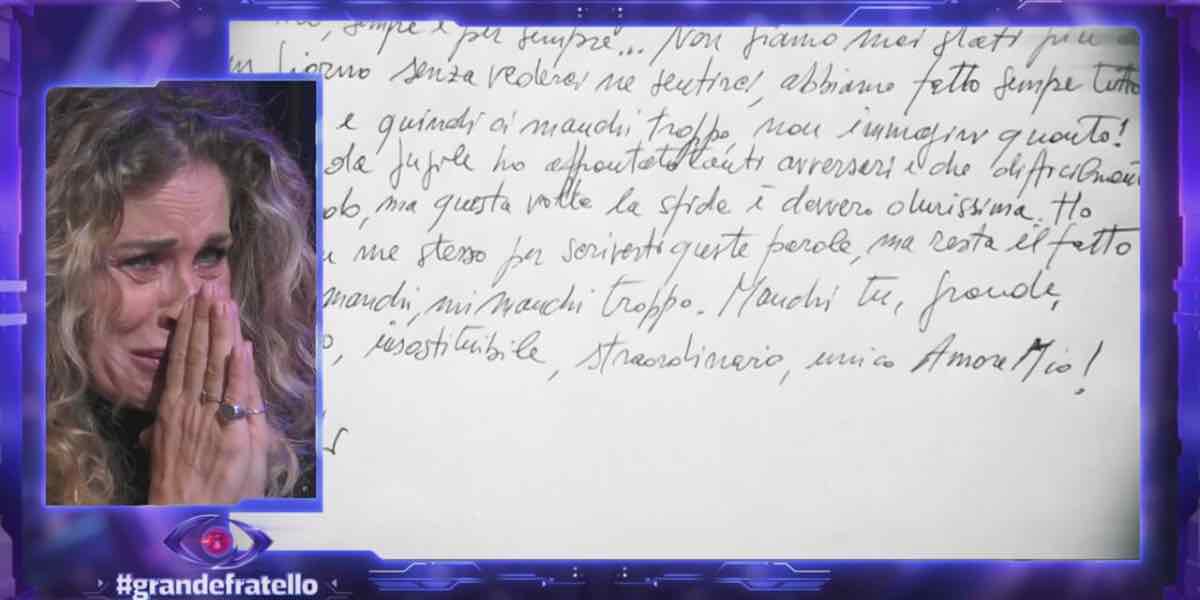 sempre e per sempre... Non siamo mai stati più
giorno senza vederci ne sentirci, abbiamo fatto sempre tutto
e quindi ci manchi troppo, non immagini quanto!
da pugile ho affrontato tanti avversari e che difficilmente
ma questa volta la sfida è davvero durissima. Ho
me stesso per scriverti queste parole, ma resta il fatto
manchi, mi manchi troppo. Manchi tu, grande,
insostituibile, straordinario, unico Amore Mio!
#grandefratello